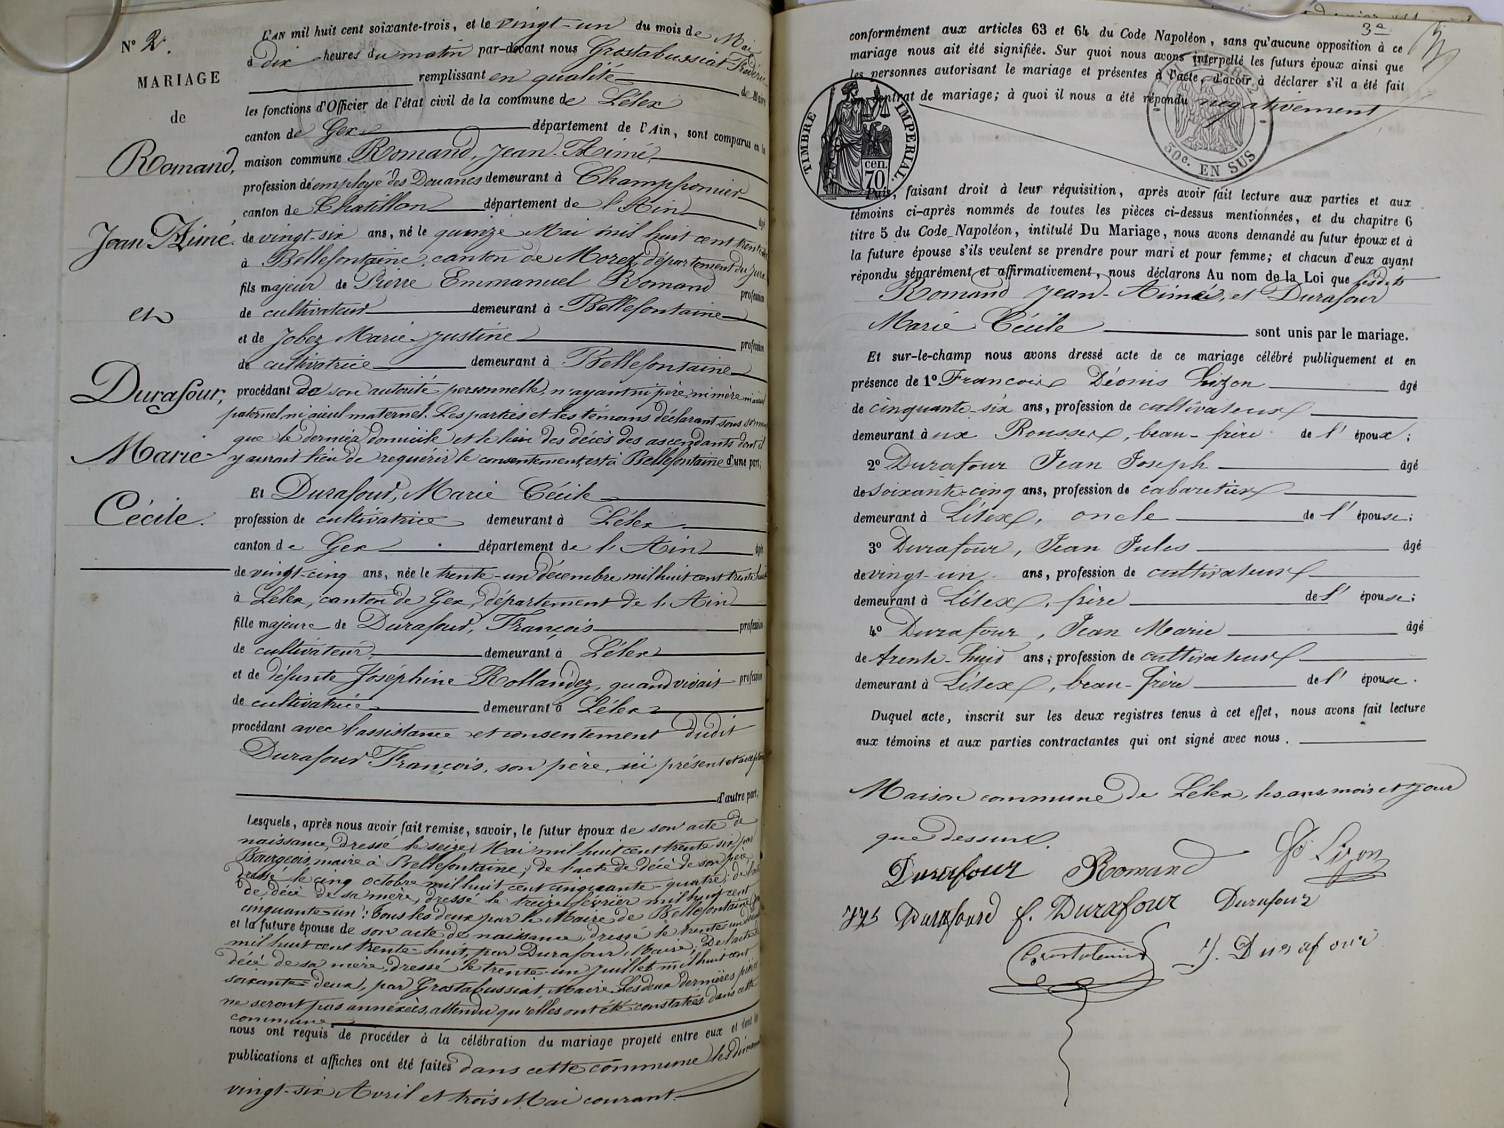 N° 2.
MARIAGE
de
Romand,
Jean Aimé.
et
Durafour,
Marie
Cécile.
L'AN mil huit cent soixante-trois, et le vingt-un du mois de Mai
à dix heures du matin par-devant nous Grostabussiat
remplissant en qualité de Maire
les fonctions d'Officier de l'état civil de la commune de Lélex
canton de Gex département de l'Ain, sont comparus en la
maison commune Romand, Jean-Aimé,
profession d'employé des Douanes demeurant à Champfromier
canton de Chatillon département de l'Ain âgé
de vingt-six ans, né le quinze Mai mil huit cent trente
à Bellefontaine, canton de Morez, département du Jura
fils majeur de Pierre Emmanuel Romand profession
de cultivateur demeurant à Bellefontaine
et de Jobez Marie Justine profession
de cultivatrice demeurant à Bellefontaine
procédant de son autorité personnelle, n'ayant ni père, ni mère, ni aïeul
paternel ni aïeul maternel. Les parties et les témoins déclarant sous serment
que le dernier domicile et le lieu des décès des ascendants dont il
y aurait lieu de requérir le consentement, est à Bellefontaine d'une part;
Et Durafour, Marie Cécile
profession de cultivatrice demeurant à Lélex
canton de Gex département de l'Ain âgée
de vingt-cinq ans, née le trente-un décembre mil huit cent trente
à Lélex, canton de Gex, département de l'Ain
fille majeure de Durafour, François profession
de cultivateur demeurant à Lélex
et de défunte Joséphine Rollandez, quand vivait profession
de cultivatrice demeurant à Lélex
procédant avec l'assistance et consentement dudit
Durafour François, son père, ici présent et acceptant
d'autre part.
Lesquels, après nous avoir fait remise, savoir, le futur époux de son acte de
naissance, dressé le seize Mai mil huit cent trente six, par
Bourgeois, maire à Bellefontaine; de l'acte de décè de son père
dressé le cinq octobre mil huit cent cinquante-quatre; de l'acte
de décè de sa mère, dressé le treize février mil huit cent
cinquante-un: tous les deux par le Maire de Bellefontaine
et la future épouse de son acte de naissance, dressé le trente un
mil huit cent trente-huit, par Durafour, Maire; De l'acte de
décé de sa mère, dressé le trente-un juillet mil huit cent
soixante-deux, par Grostabussiat, Maire. Les deux dernières pièces
ne seront pas annexées, attendu qu'elles ont été constatées dans cette
commune
nous ont requis de procéder à la célébration du mariage projeté entre eux et dont les
publications et affiches ont été faites dans cette commune les dimanches
vingt-six Avril et trois Mai courant.
3e
conformément aux articles 63 et 64 du Code Napoléon, sans qu'aucune opposition à ce
mariage nous ait été signifiée. Sur quoi nous avons interpellé les futurs époux ainsi que
les personnes autorisant le mariage et présentes à l'acte, d'avoir à déclarer s'il a été fait
contrat de mariage; à quoi il nous a été répondu négativement
TIMBRE IMPERIAL
70 cen.
50c. EN SUS
Puis, faisant droit à leur réquisition, après avoir fait lecture aux parties et aux
témoins ci-après nommés de toutes les pièces ci-dessus mentionnées, et du chapitre 6
titre 5 du Code Napoléon, intitulé Du Mariage, nous avons demandé au futur époux et à
la future épouse s'ils veulent se prendre pour mari et pour femme; et chacun d'eux ayant
répondu séparément et affirmativement, nous déclarons Au nom de la Loi que lesdits
Romand Jean-Aimé, et Durafour
Marie Cécile sont unis par le mariage.
Et sur-le-champ nous avons dressé acte de ce mariage célébré publiquement et en
présence de 1° François Déonis Lizon âgé
de cinquante-six ans, profession de cultivateur
demeurant à ux Rousses, beau-frère de l'époux;
2° Durafour Jean Joseph âgé
de soixante-cinq ans, profession de cabaretier
demeurant à Lélex, oncle de l'épouse;
3° Durafour, Jean Jules âgé
de vingt-un ans, profession de cultivateur
demeurant à Lélex, frère de l'épouse;
4° Durafour, Jean Marie âgé
de trente-huit ans; profession de cultivateur
demeurant à Lélex, beau-frère de l'épouse.
Duquel acte, inscrit sur les deux registres tenus à cet effet, nous avons fait lecture
aux témoins et aux parties contractantes qui ont signé avec nous.
Maison commune de Lélex, les ans, mois et jour
que dessus.
Durafour Romand Lizon
Durafourd f. Durafour Durafour
J. Durafour